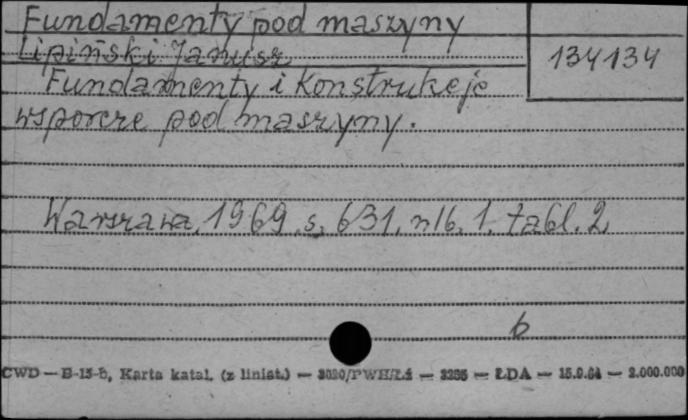 Fundamenty pod maszyny
Lipiński Janusz
134134
Fundamenty i Konstrukcje
wsporcze pod maszyny.
Warszawa, 1969, s. 631, nlb. 1, tabl. 2
b
CWD — B-15-b, Karta katal. (z liniat.) — 3020/PWH/Łź — 3235 — ŁDA — 15.9.64 — 2.000.000